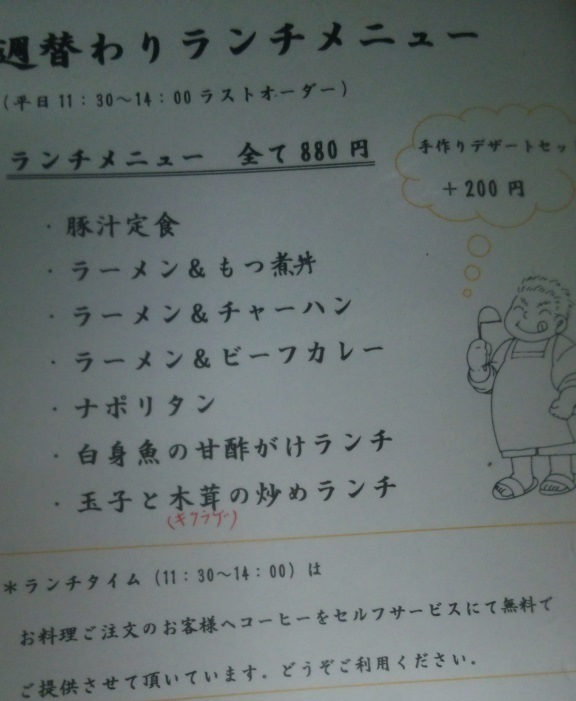 週替わりランチメニュー
(平日11:30～14:00 ラストオーダー)
ランチメニュー 全て880円
手作りデザートセッ
＋200円
・豚汁定食
・ラーメン＆もつ煮丼
・ラーメン＆チャーハン
・ラーメン＆ビーフカレー
・ナポリタン
・白身魚の甘酢がけランチ
・玉子と木茸の炒めランチ
(キクラゲ)
＊ランチタイム (11:30～14:00) は
お料理ご注文のお客様へコーヒーをセルフサービスにて無料で
ご提供させて頂いています。どうぞご利用ください。